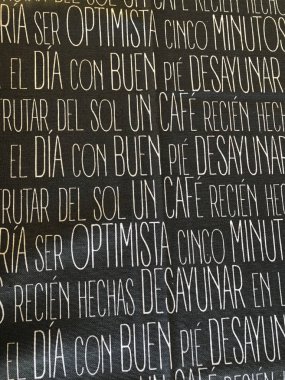 RUTAR DEL SOL UN CAFÉ RECIÉN HECHAS
RÍA SER OPTIMISTA CINCO MINUTOS
EL DÍA CON BUEN PIÉ DESAYUNAR
RUTAR DEL SOL UN CAFÉ RECIÉN HECHAS
EL DÍA CON BUEN PIÉ DESAYUNAR
FRUTAR DEL SOL UN CAFÉ RECIÉN HECHAS
RÍA SER OPTIMISTA CINCO MINUTO
S RECIÉN HECHAS DESAYUNAR EN L
EL DÍA CON BUEN PIÉ DESAYUNA
UN CAFÉ RECIÉN